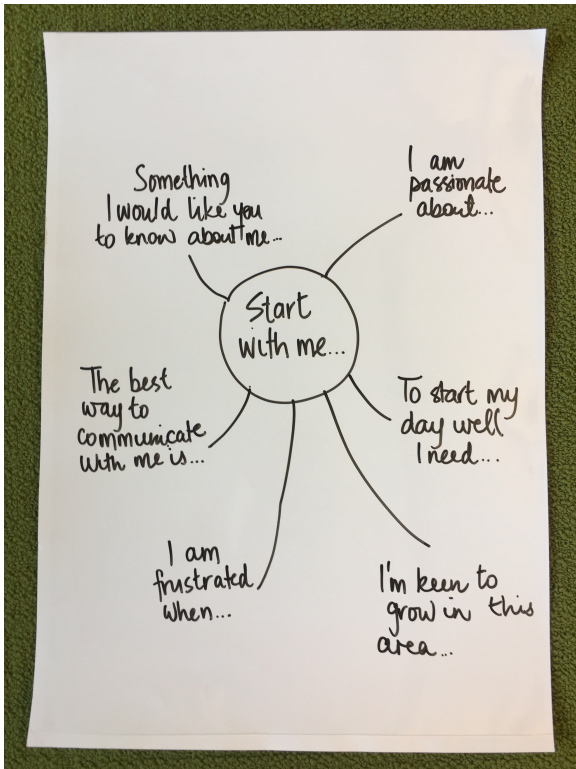 Start
with me...
Something
I would like you
to know about me...
I am
passionate
about...
To start my
day well
I need...
I'm keen to
grow in this
area...
I am
frustrated
when...
The best
way to
communicate
with me is...